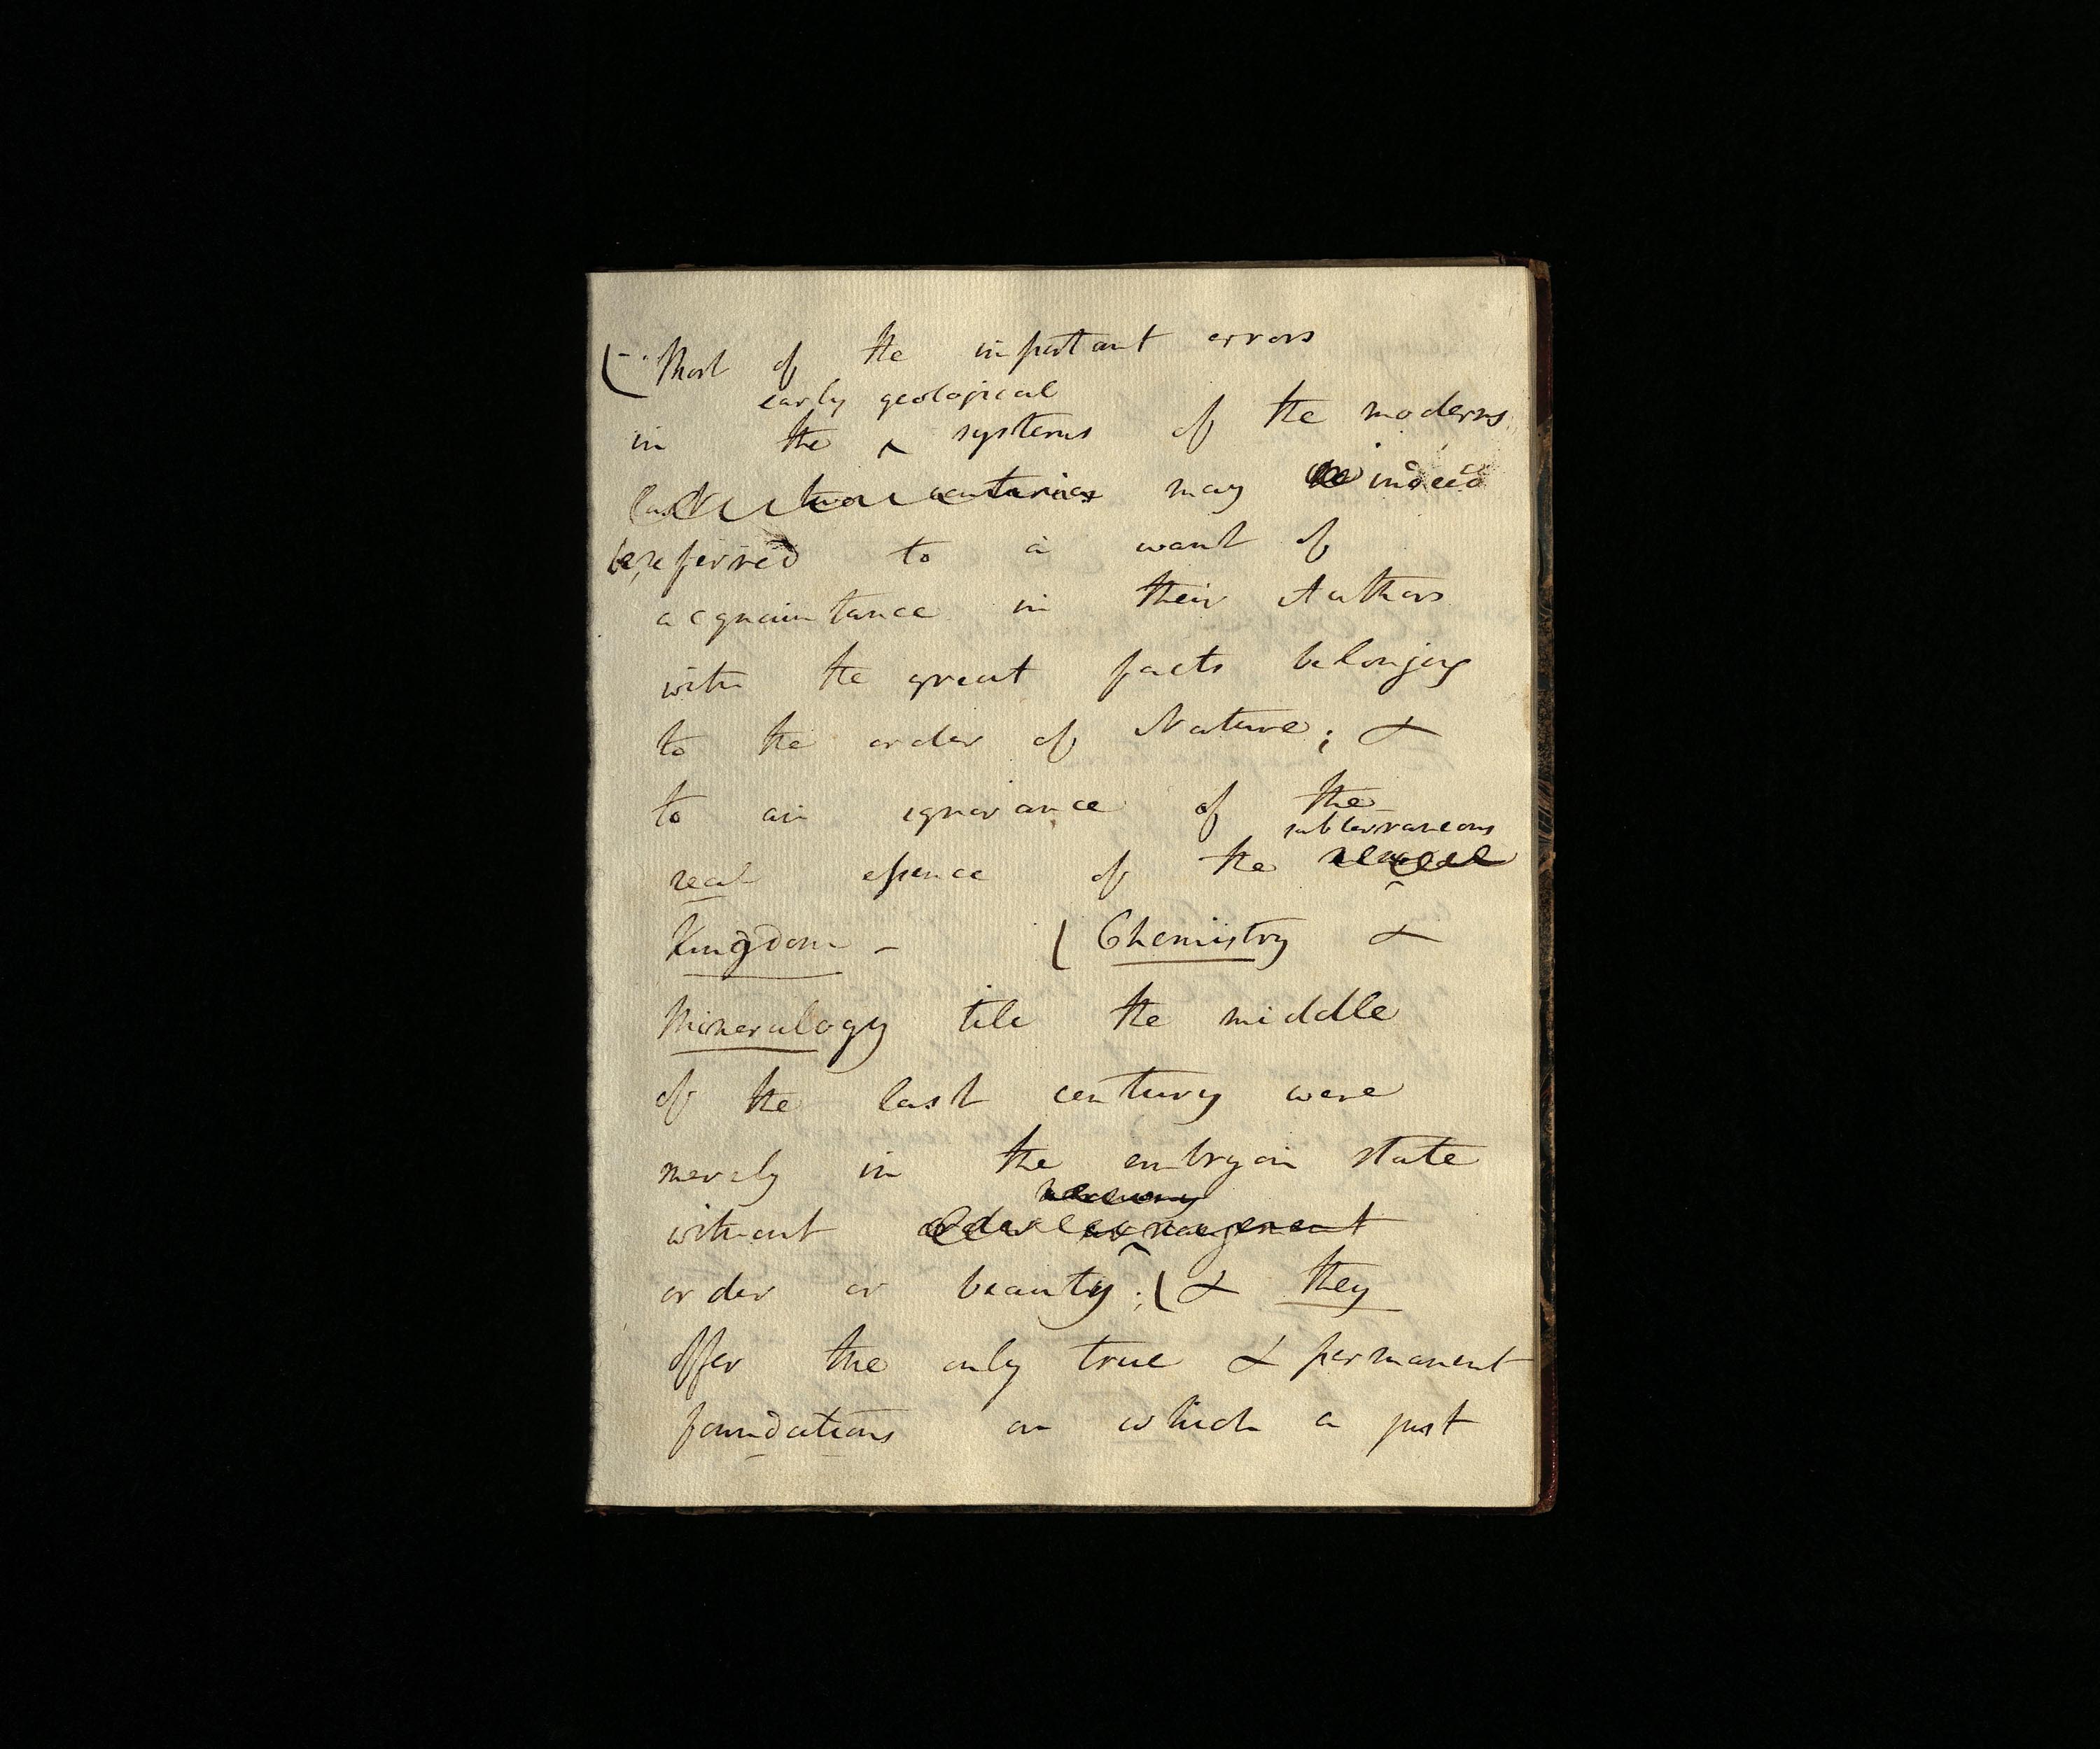 (-. Most of the important errors
early geological
in the ^ systems of the moderns
last two centuries may be indeed
be referred to a want of
acquaintance in their Authors
with the great facts belonging
to the order of Nature; &
to an ignorance of the
subterraneous
real essence of the
Kingdom - ( Chemistry &
Mineralogy till the middle
of the last century were
merely in the embryon state
harmony
without order arrangement
order or beauty; ( & they
offer the only true & permanent
foundations on which a just